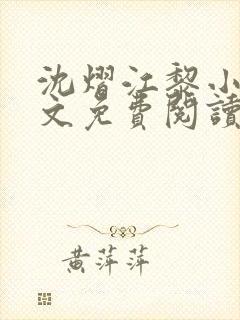 沈熠江黎小
文免費閱讀
黃萍萍